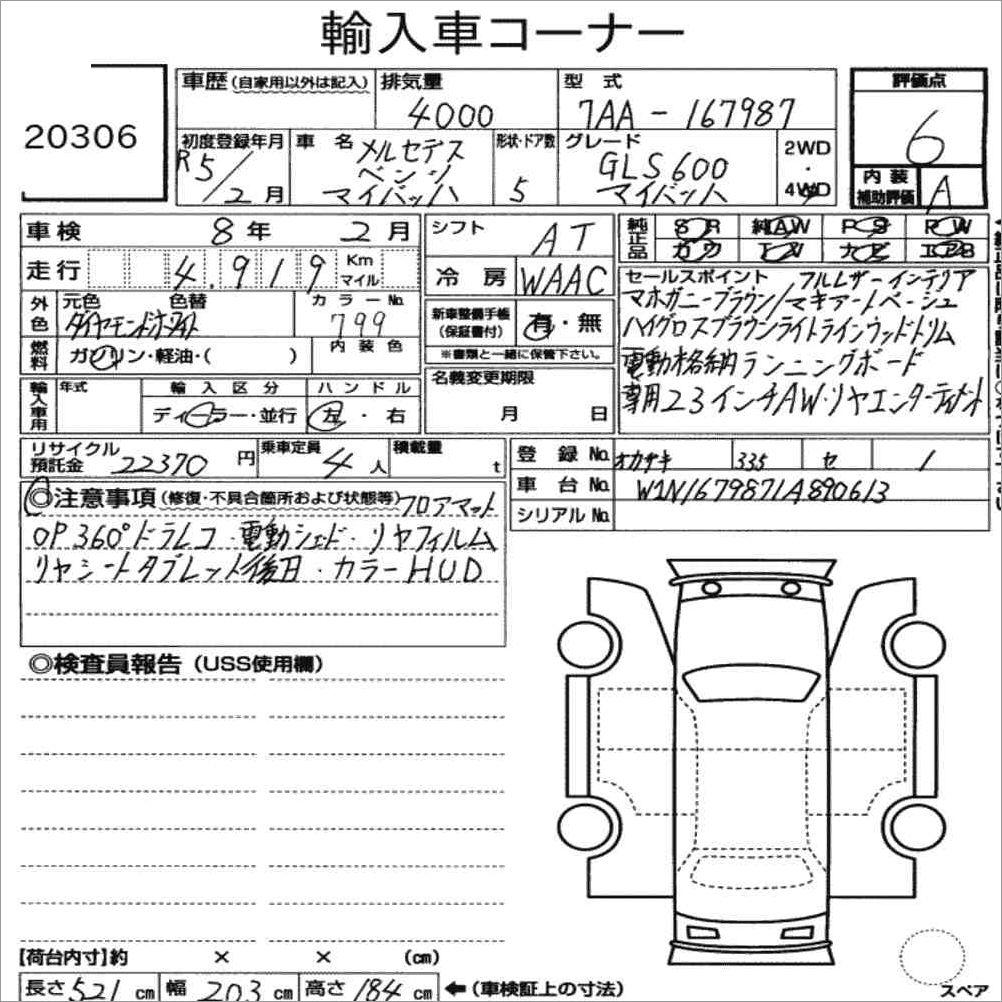 輸入車コーナー
20306
車歴(自家用以外は記入) 排気量 4000
型式 7AA-167987
評価点 6
初度登録年月 R5/2月
車名 メルセデス ベンツ マイバッハ
形状・ドア数 5
グレード GLS600 マイバッハ
2WD・4WD
内装補助評価 A
車検 8年 2月
シフト AT
純正品 SR 純AW PS PW
カワ TV ナビ エアB
走行 4,919 Km マイル
冷房 WAAC
セールスポイント フルレザーインテリア
マホガニーブラウン/マキアートベージュ
ハイグロスブラウンライトラインウッドトリム
電動格納ランニングボード
専用23インチAW・リヤエンターテイメント
外色 元色 色替 ダイヤモンドホワイト
カラーNo. 799
新車整備手帳(保証書付) 有・無
※書類と一緒に保管下さい。
燃料 ガソリン・軽油・( )
内装色
輸入車用 年式 輸入区分 ハンドル
ディーラー・並行 左・右
名義変更期限 月 日
リサイクル預託金 22370円
乗車定員 4人
積載量 t
登録No. オカザキ 335 セ 1
車台No. W1N1679871A890613
シリアルNo.
◎注意事項(修復・不具合箇所および状態等)フロアマット
OP360°ドラレコ・電動シェード・リヤフィルム
リヤシートタブレット後日・カラーHUD
◎検査員報告(USS使用欄)
【荷台内寸】約 × × (cm)
長さ521cm 幅203cm 高さ184cm ←(車検証上の寸法)
スペア